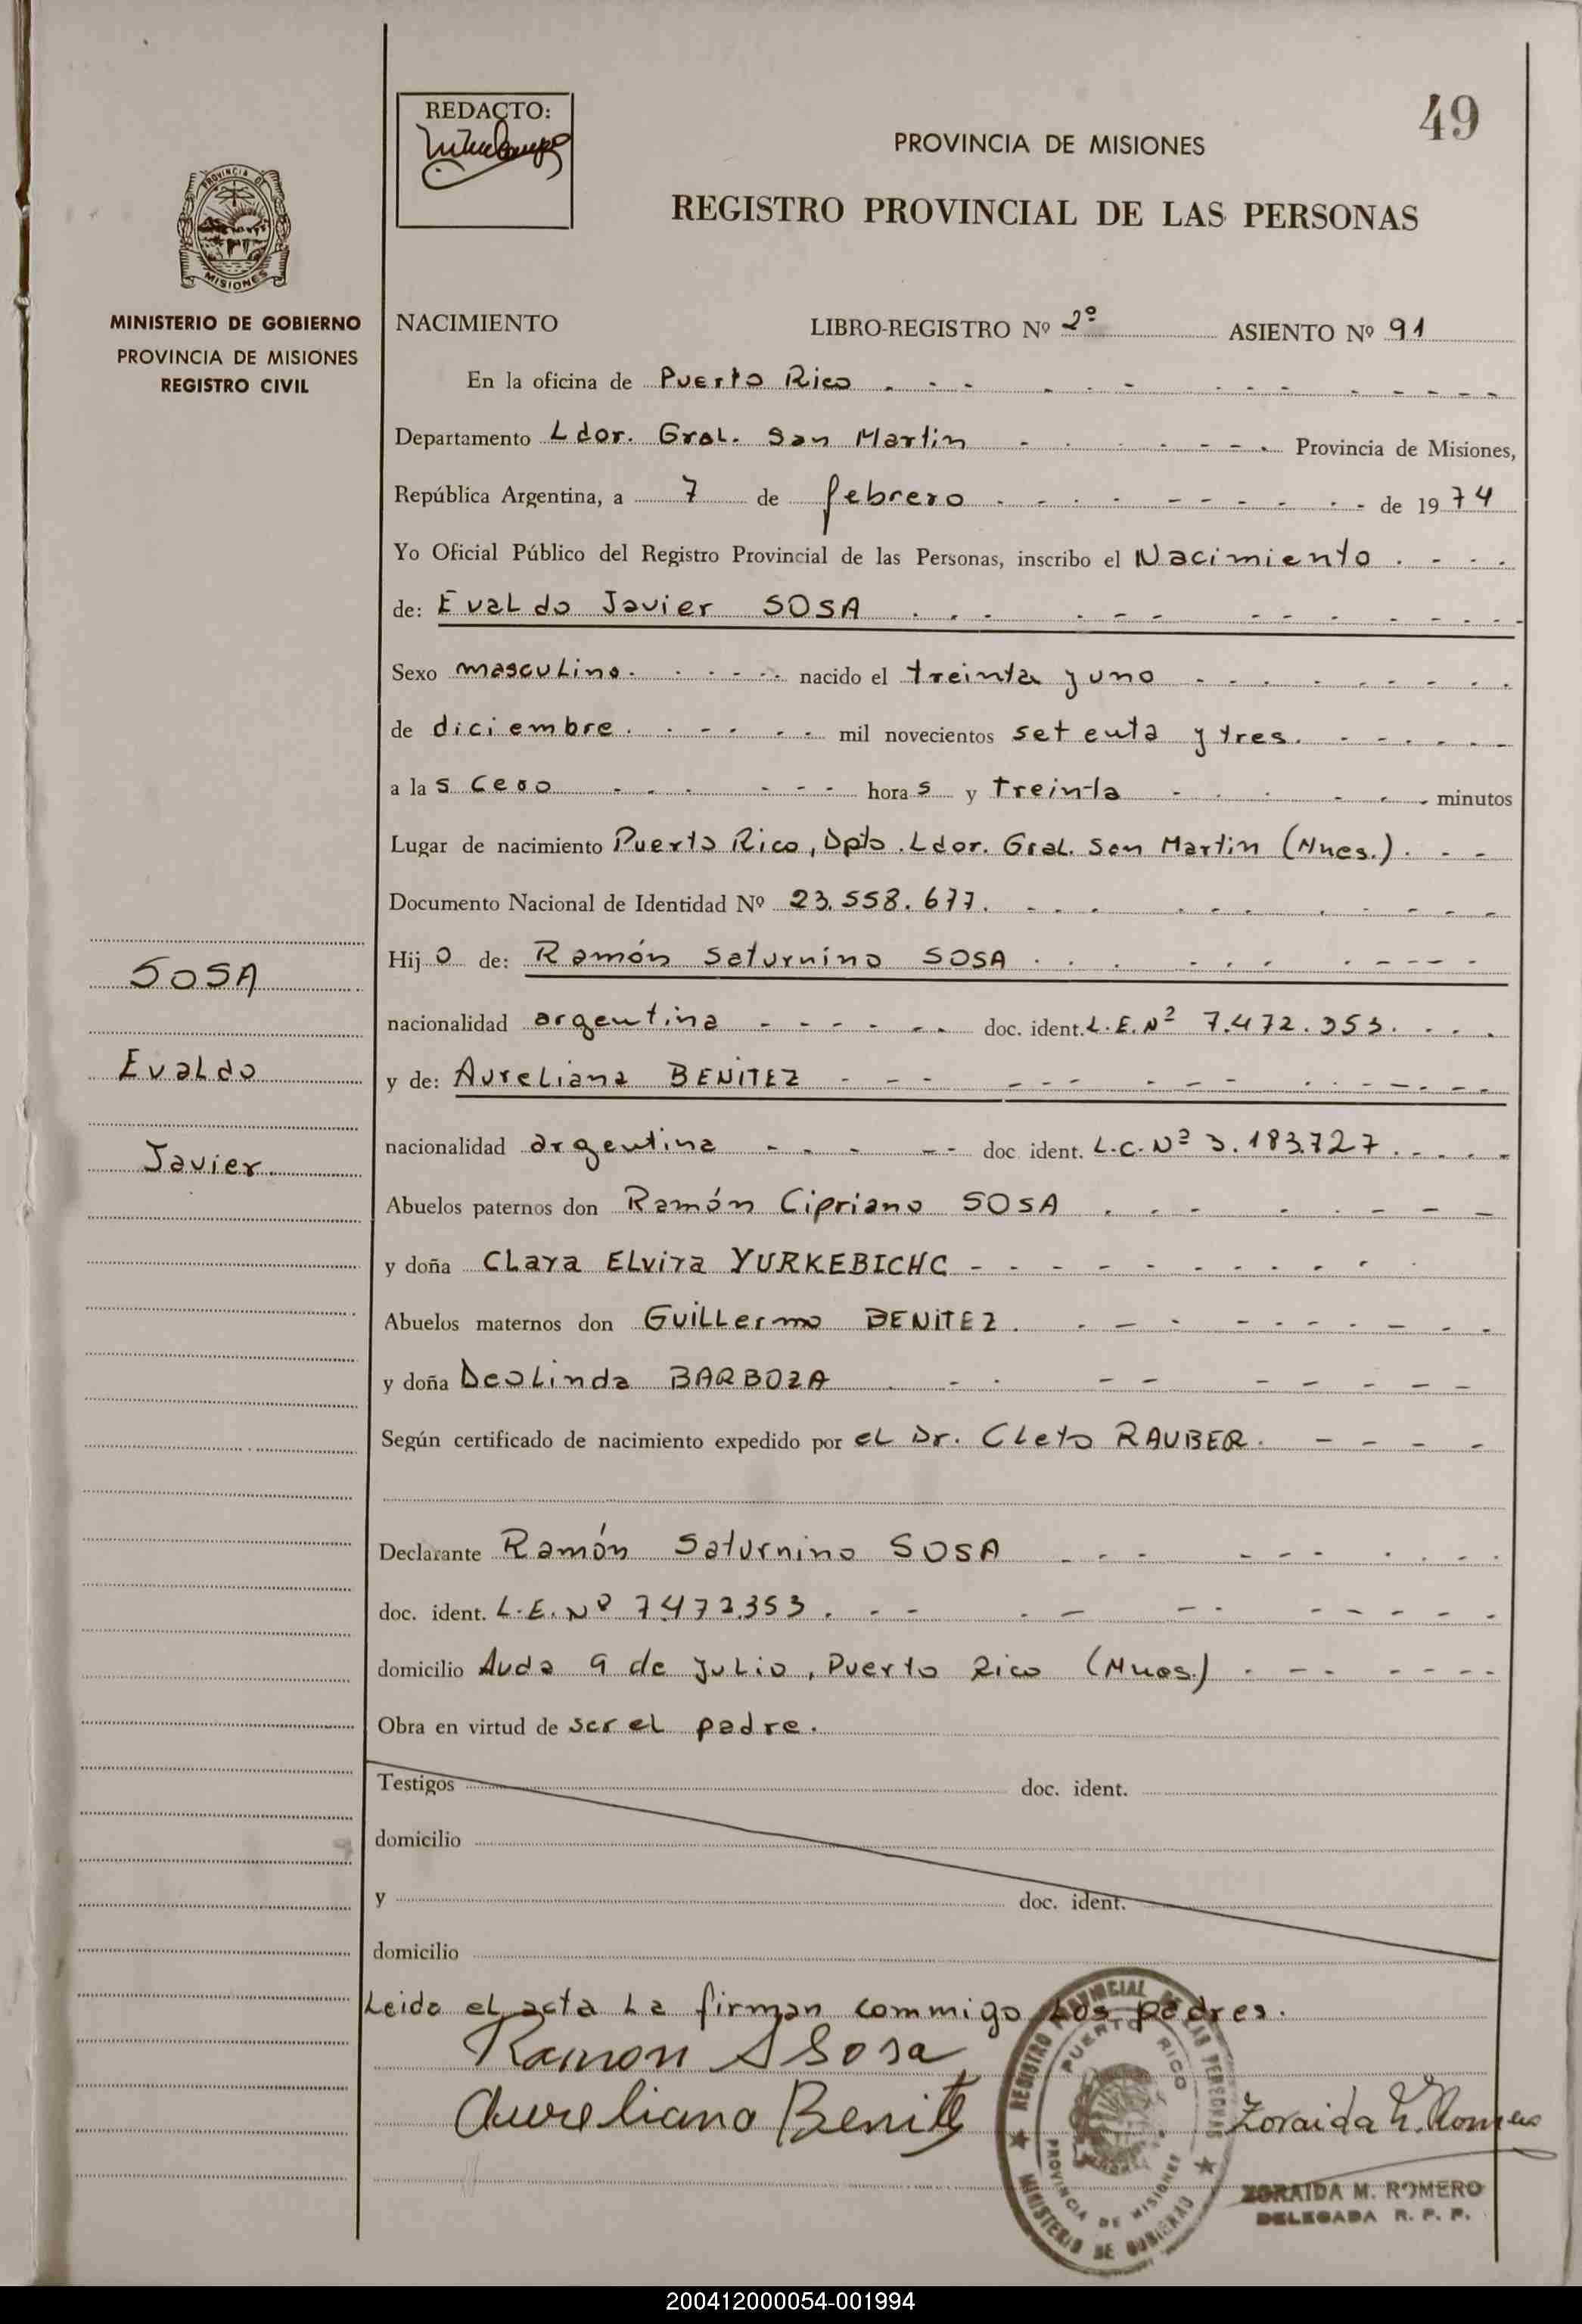 49
REDACTO:
PROVINCIA DE MISIONES
REGISTRO PROVINCIAL DE LAS PERSONAS
PROVINCIA DE
MISIONES
MINISTERIO DE GOBIERNO
PROVINCIA DE MISIONES
REGISTRO CIVIL
NACIMIENTO LIBRO-REGISTRO Nº 2º ASIENTO Nº 91
En la oficina de Puerto Rico
Departamento Ldor. Gral. San Martin Provincia de Misiones,
República Argentina, a 7 de febrero de 1974
Yo Oficial Público del Registro Provincial de las Personas, inscribo el Nacimiento
de: Evaldo Javier SOSA
Sexo masculino nacido el treinta y uno
de diciembre mil novecientos setenta y tres
a las cero horas y treinta minutos
Lugar de nacimiento Puerto Rico, Dpto. Ldor. Gral. San Martin (Mnes.)
Documento Nacional de Identidad Nº 23.558.677.
Hijo de: Ramón Saturnino SOSA
nacionalidad argentina doc. ident. L.E. Nº 7.472.353.
y de: Aureliana BENITEZ
nacionalidad argentina doc ident. L.C. Nº 3.183.727
Abuelos paternos don Ramón Cipriano SOSA
y doña Clara Elvira YURKEBICHC
Abuelos maternos don Guillermo BENITEZ
y doña Deolinda BARBOZA
Según certificado de nacimiento expedido por el Dr. Cleto RAUBER.
Declarante Ramón Saturnino SOSA
doc. ident. L.E. Nº 7.472.353
domicilio Avda 9 de Julio, Puerto Rico (Mnes.)
Obra en virtud de ser el padre.
Testigos doc. ident.
domicilio
y doc. ident.
domicilio
Leida el acta la firman commigo los padres.
Ramon S Sosa
Aureliana Benitez
Zoraida M. Romero
ZORAIDA M. ROMERO
DELEGADA R. P. P.
REGISTRO PROVINCIAL DE LAS PERSONAS
PUERTO RICO
PROVINCIA DE MISIONES
MINISTERIO DE GOBIERNO
SOSA
Evaldo
Javier
200412000054-001994